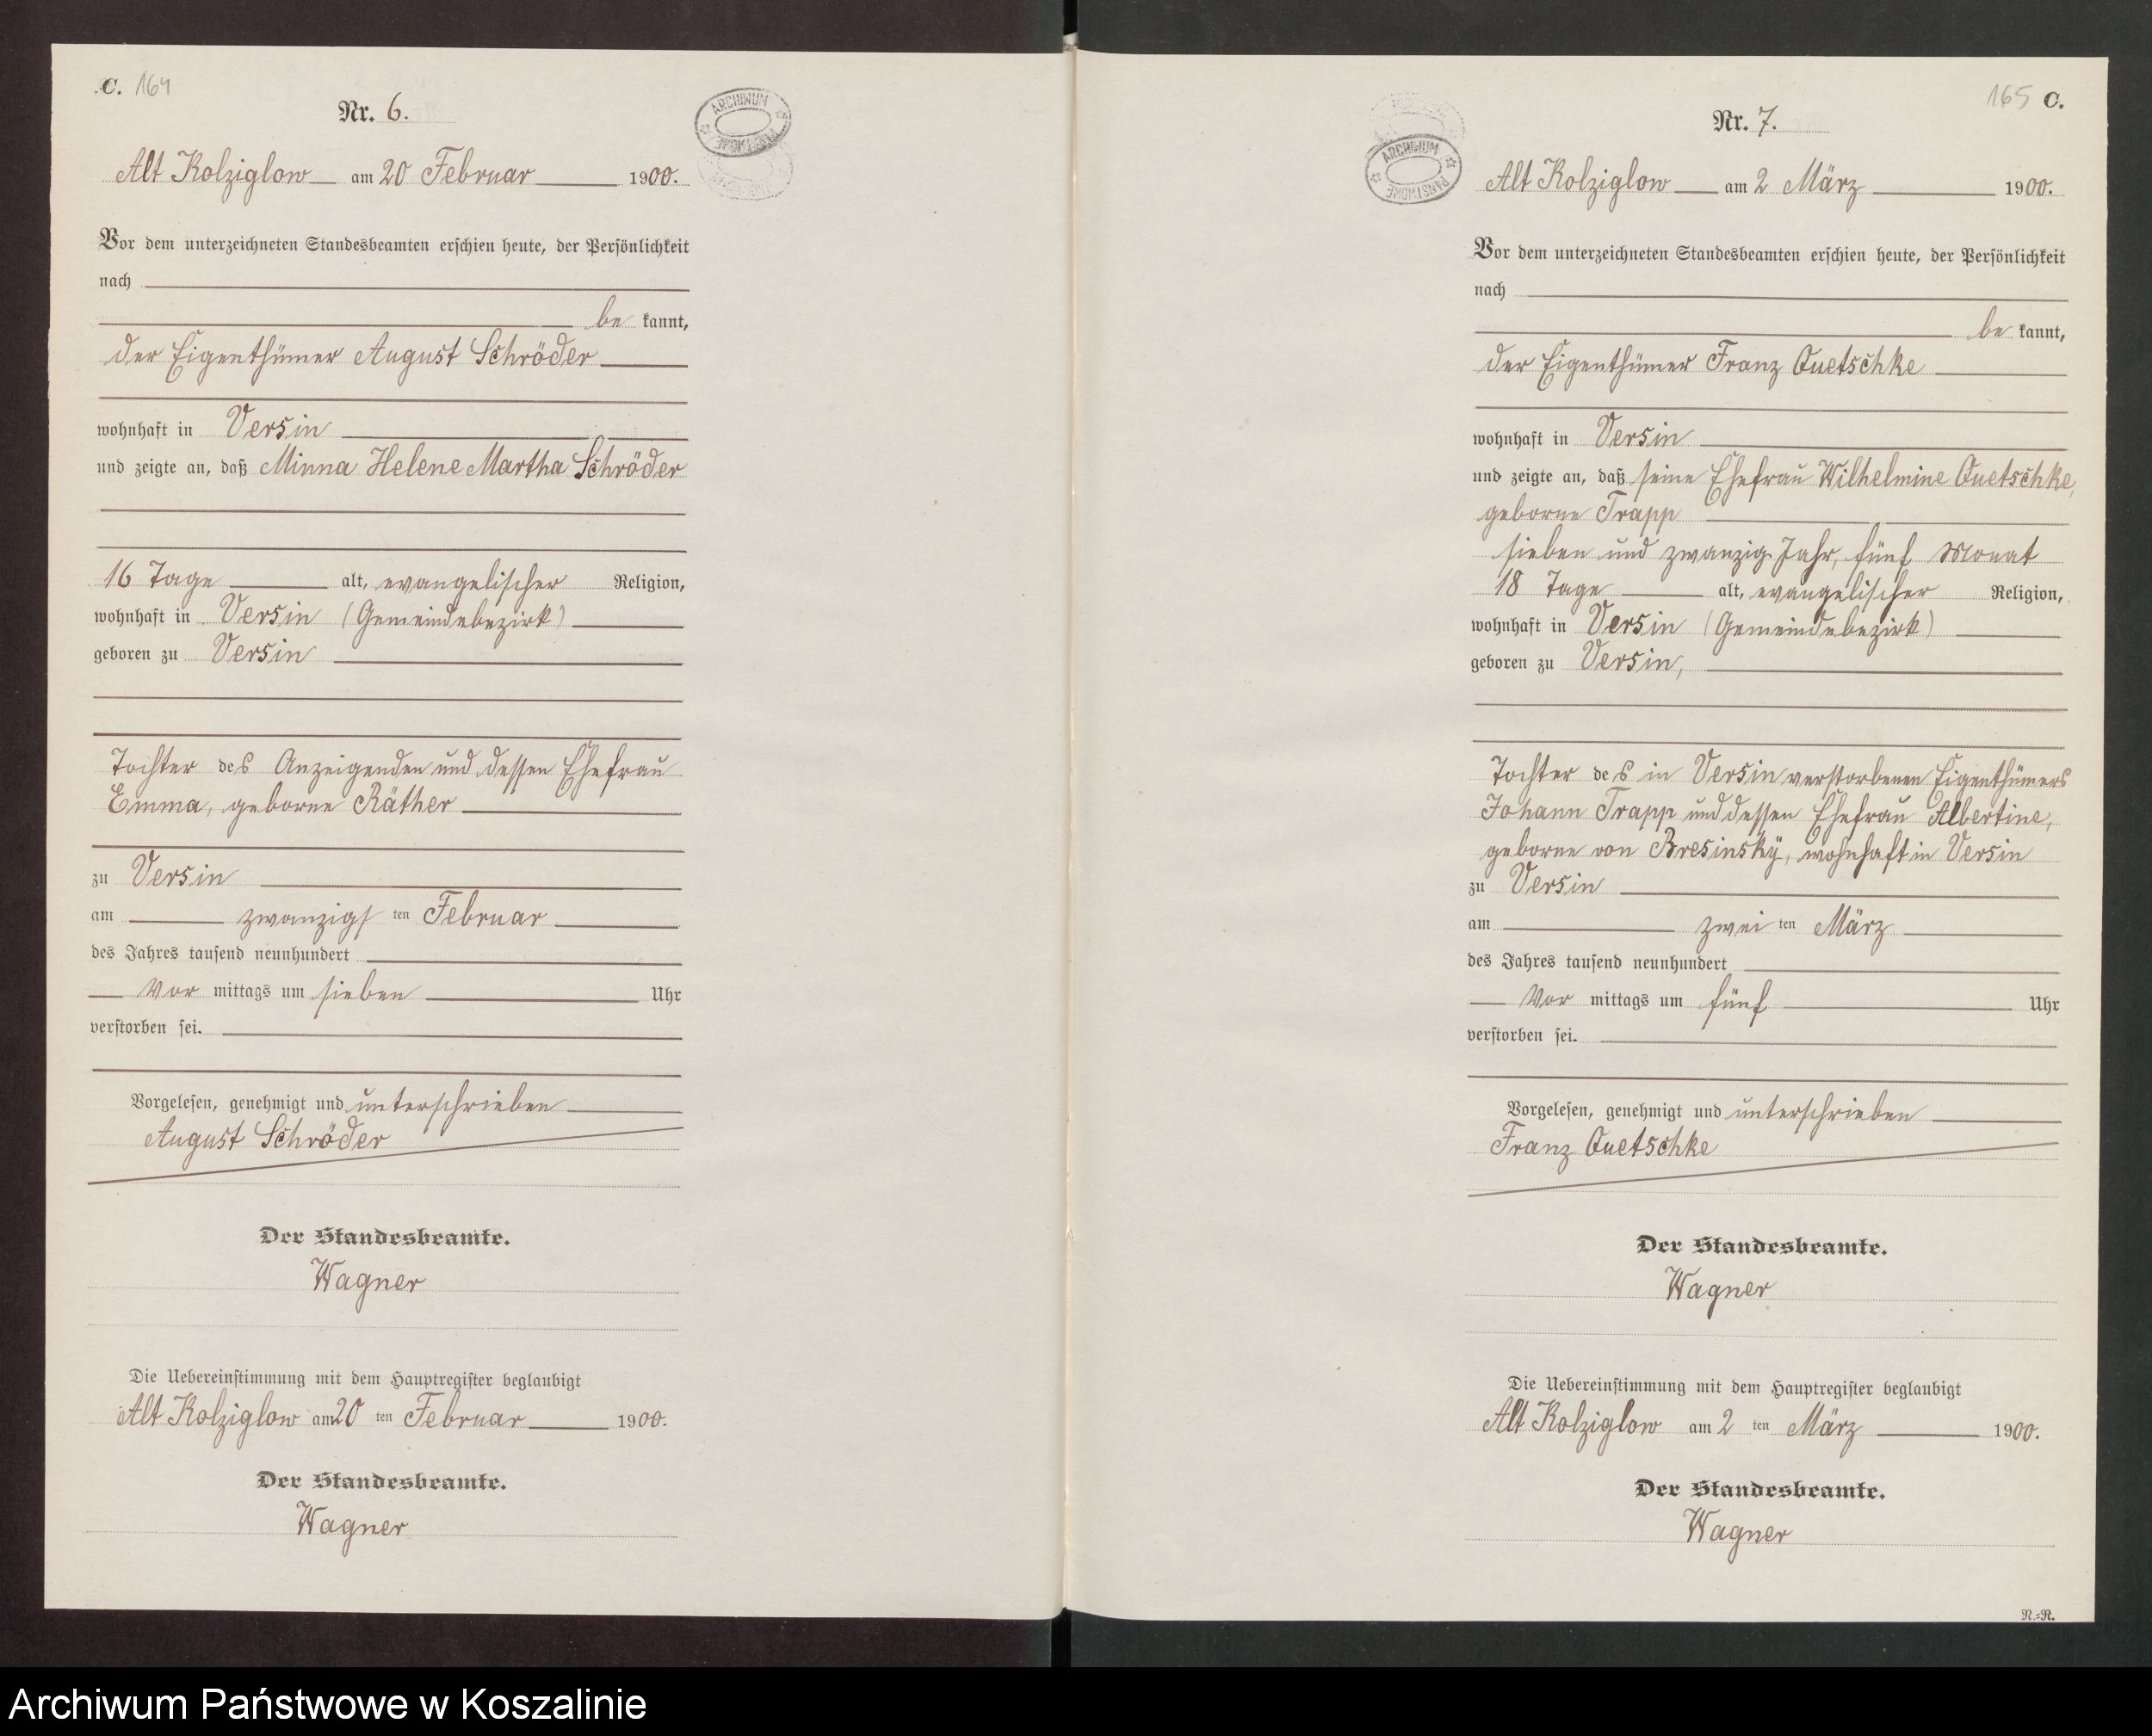 C. 164
Nr. 6.
ARCHIWUM PAŃSTWOWE
Alt Kolziglow am 20 Februar 1900.
Vor dem unterzeichneten Standesbeamten erschien heute, der Persönlichkeit
nach
be kannt,
der Eigenthümer August Schröder
wohnhaft in Versin
und zeigte an, daß Minna Helene Martha Schröder
16 Tage alt, evangelischer Religion,
wohnhaft in Versin (Gemeindebezirk)
geboren zu Versin
Tochter des Anzeigenden und dessen Ehefrau
Emma, geborne Räther
zu Versin
am zwanzigs ten Februar
des Jahres tausend neunhundert
Vor mittags um sieben Uhr
verstorben sei.
Vorgelesen, genehmigt und unterschrieben
August Schröder
Der Standesbeamte.
Wagner
Die Uebereinstimmung mit dem Hauptregister beglaubigt
Alt Kolziglow am 20 ten Februar 1900.
Der Standesbeamte.
Wagner
165 C.
Nr. 7.
ARCHIWUM PAŃSTWOWE
Alt Kolziglow am 2 März 1900.
Vor dem unterzeichneten Standesbeamten erschien heute, der Persönlichkeit
nach
be kannt,
der Eigenthümer Franz Quetschke
wohnhaft in Versin
und zeigte an, daß seine Ehefrau Wilhelmine Quetschke,
geborne Trapp
sieben und zwanzig Jahr, fünf Monat
18 Tage alt, evangelischer Religion,
wohnhaft in Versin (Gemeindebezirk)
geboren zu Versin,
Tochter des in Versin verstorbenen Eigenthümers
Johann Trapp und dessen Ehefrau Albertine,
geborne von Bresinsky, wohnhaft in Versin
zu Versin
am zwei ten März
des Jahres tausend neunhundert
Vor mittags um fünf Uhr
verstorben sei.
Vorgelesen, genehmigt und unterschrieben
Franz Quetschke
Der Standesbeamte.
Wagner
Die Uebereinstimmung mit dem Hauptregister beglaubigt
Alt Kolziglow am 2 ten März 1900.
Der Standesbeamte.
Wagner
N.=R.
Archiwum Państwowe w Koszalinie